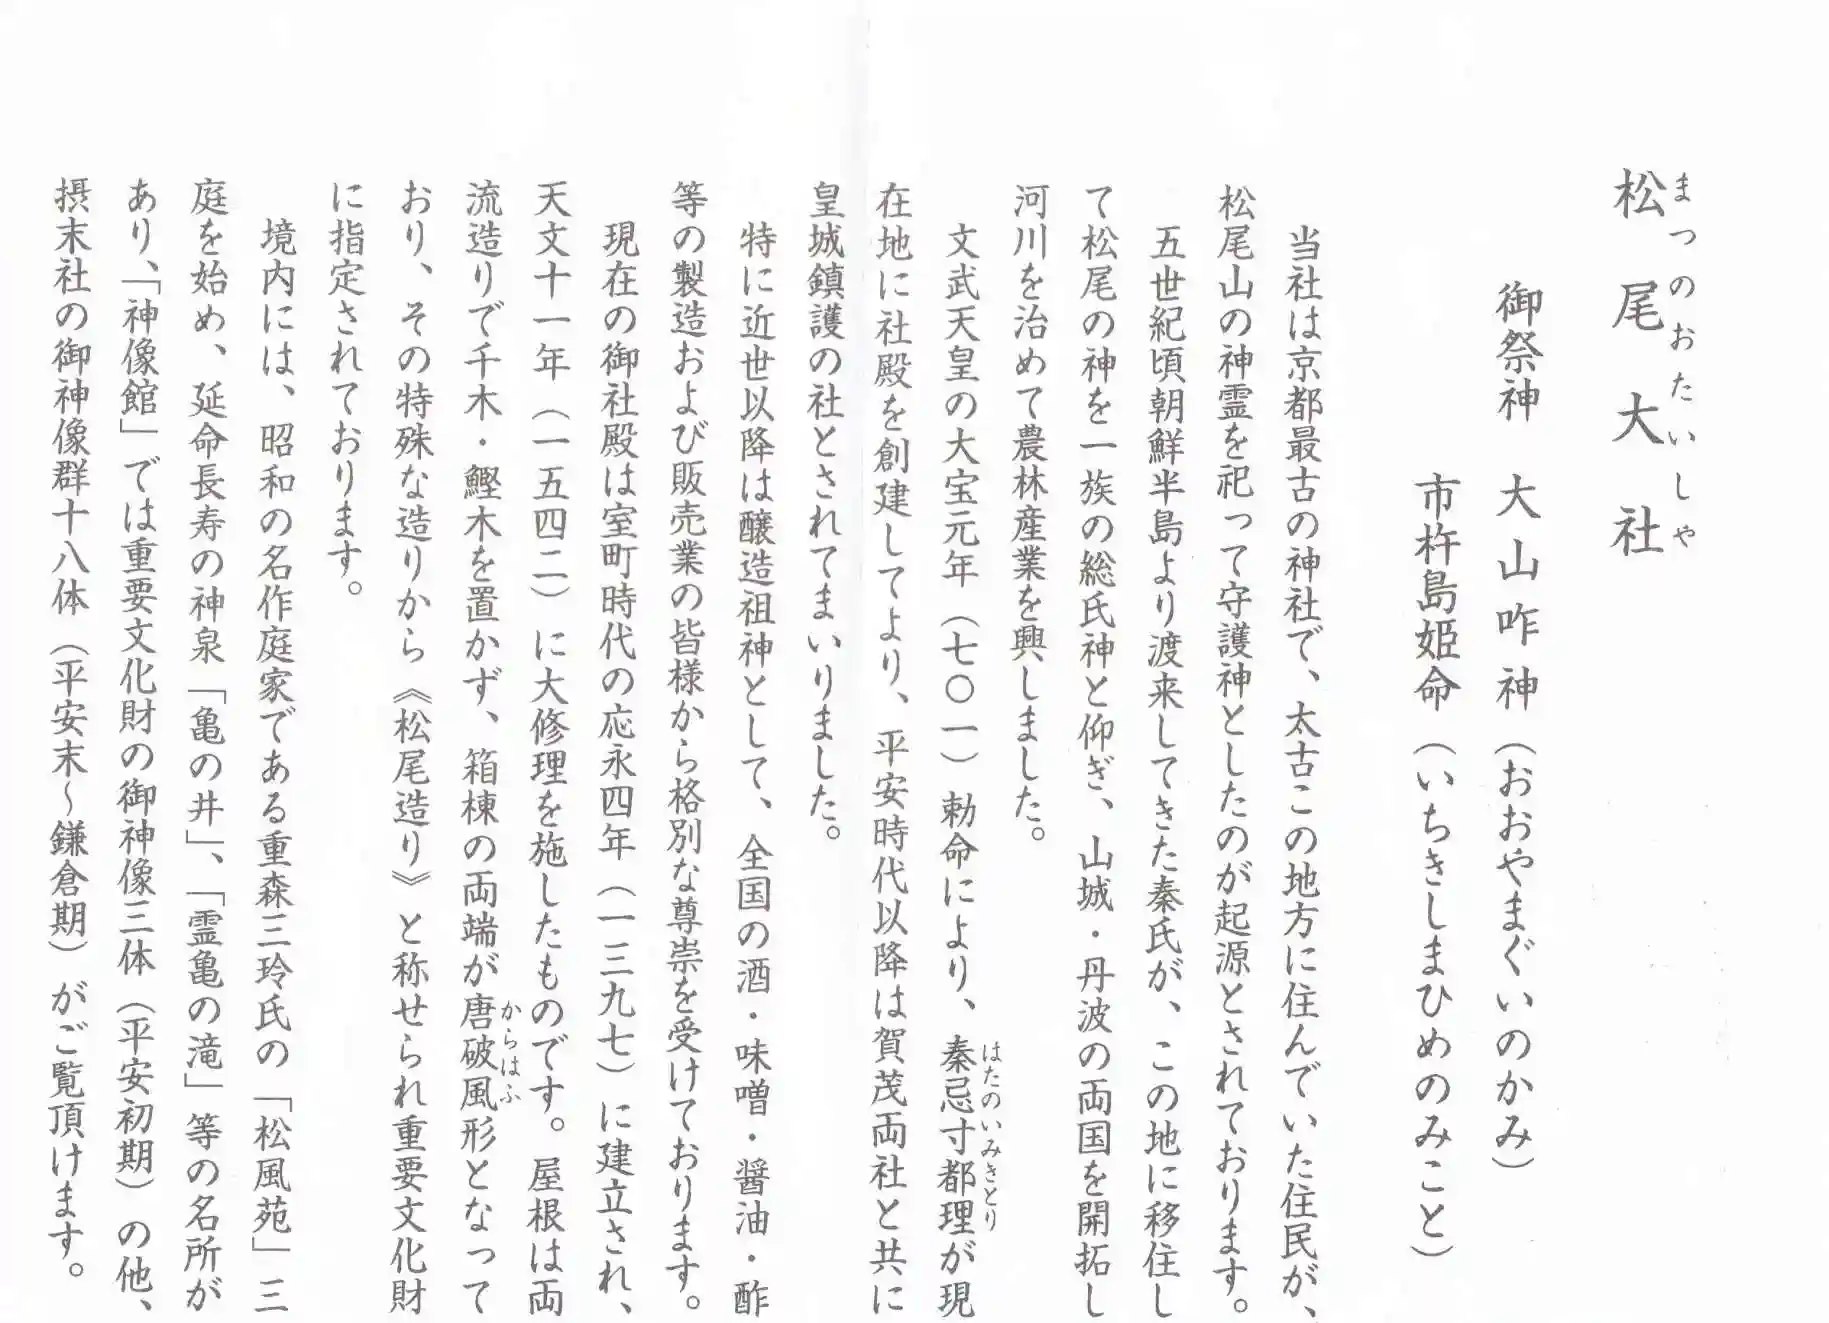 松尾大社
まつのおたいしや
御祭神　大山咋神（おおやまぐいのかみ）
市杵島姫命（いちきしまひめのみこと）
当社は京都最古の神社で、太古この地方に住んでいた住民が、
松尾山の神霊を祀って守護神としたのが起源とされております。
五世紀頃朝鮮半島より渡来してきた秦氏が、この地に移住し
て松尾の神を一族の総氏神と仰ぎ、山城・丹波の両国を開拓し
河川を治めて農林産業を興しました。
文武天皇の大宝元年（七〇一）勅命により、秦忌寸都理が現
はたのいみきとり
在地に社殿を創建してより、平安時代以降は賀茂両社と共に
皇城鎮護の社とされてまいりました。
特に近世以降は醸造祖神として、全国の酒・味噌・醤油・酢
等の製造および販売業の皆様から格別な尊崇を受けております。
現在の御社殿は室町時代の応永四年（一三九七）に建立され、
天文十一年（一五四二）に大修理を施したものです。屋根は両
流造りで千木・鰹木を置かず、箱棟の両端が唐破風形となって
からはふ
おり、その特殊な造りから《松尾造り》と称せられ重要文化財
に指定されております。
境内には、昭和の名作庭家である重森三玲氏の「松風苑」三
庭を始め、延命長寿の神泉「亀の井」、「霊亀の滝」等の名所が
あり、「神像館」では重要文化財の御神像三体（平安初期）の他、
摂末社の御神像群十八体（平安末～鎌倉期）がご覧頂けます。